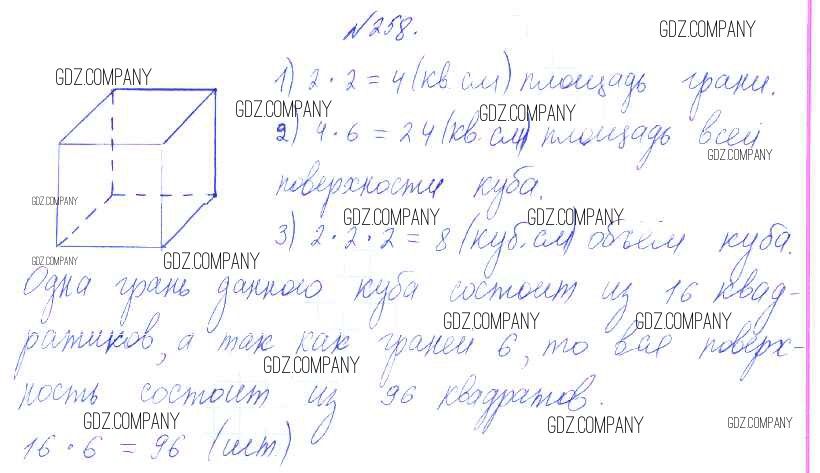 №258.
GDZ.COMPANY
GDZ.COMPANY
1) 2 · 2 = 4 (кв. см) площадь грани.
GDZ.COMPANY GDZ.COMPANY
2) 4 · 6 = 24 (кв. см) площадь всей
GDZ.COMPANY
поверхности куба.
GDZ.COMPANY
GDZ.COMPANY GDZ.COMPANY
3) 2 · 2 · 2 = 8 (куб. см) объём куба.
GDZ.COMPANY GDZ.COMPANY
Одна грань данного куба состоит из 16 квад-
GDZ.COMPANY GDZ.COMPANY
ратиков, а так как граней 6, то вся поверх-
GDZ.COMPANY
ность состоит из 96 квадратов.
GDZ.COMPANY GDZ.COMPANY GDZ.COMPANY
16 · 6 = 96 (шт.)